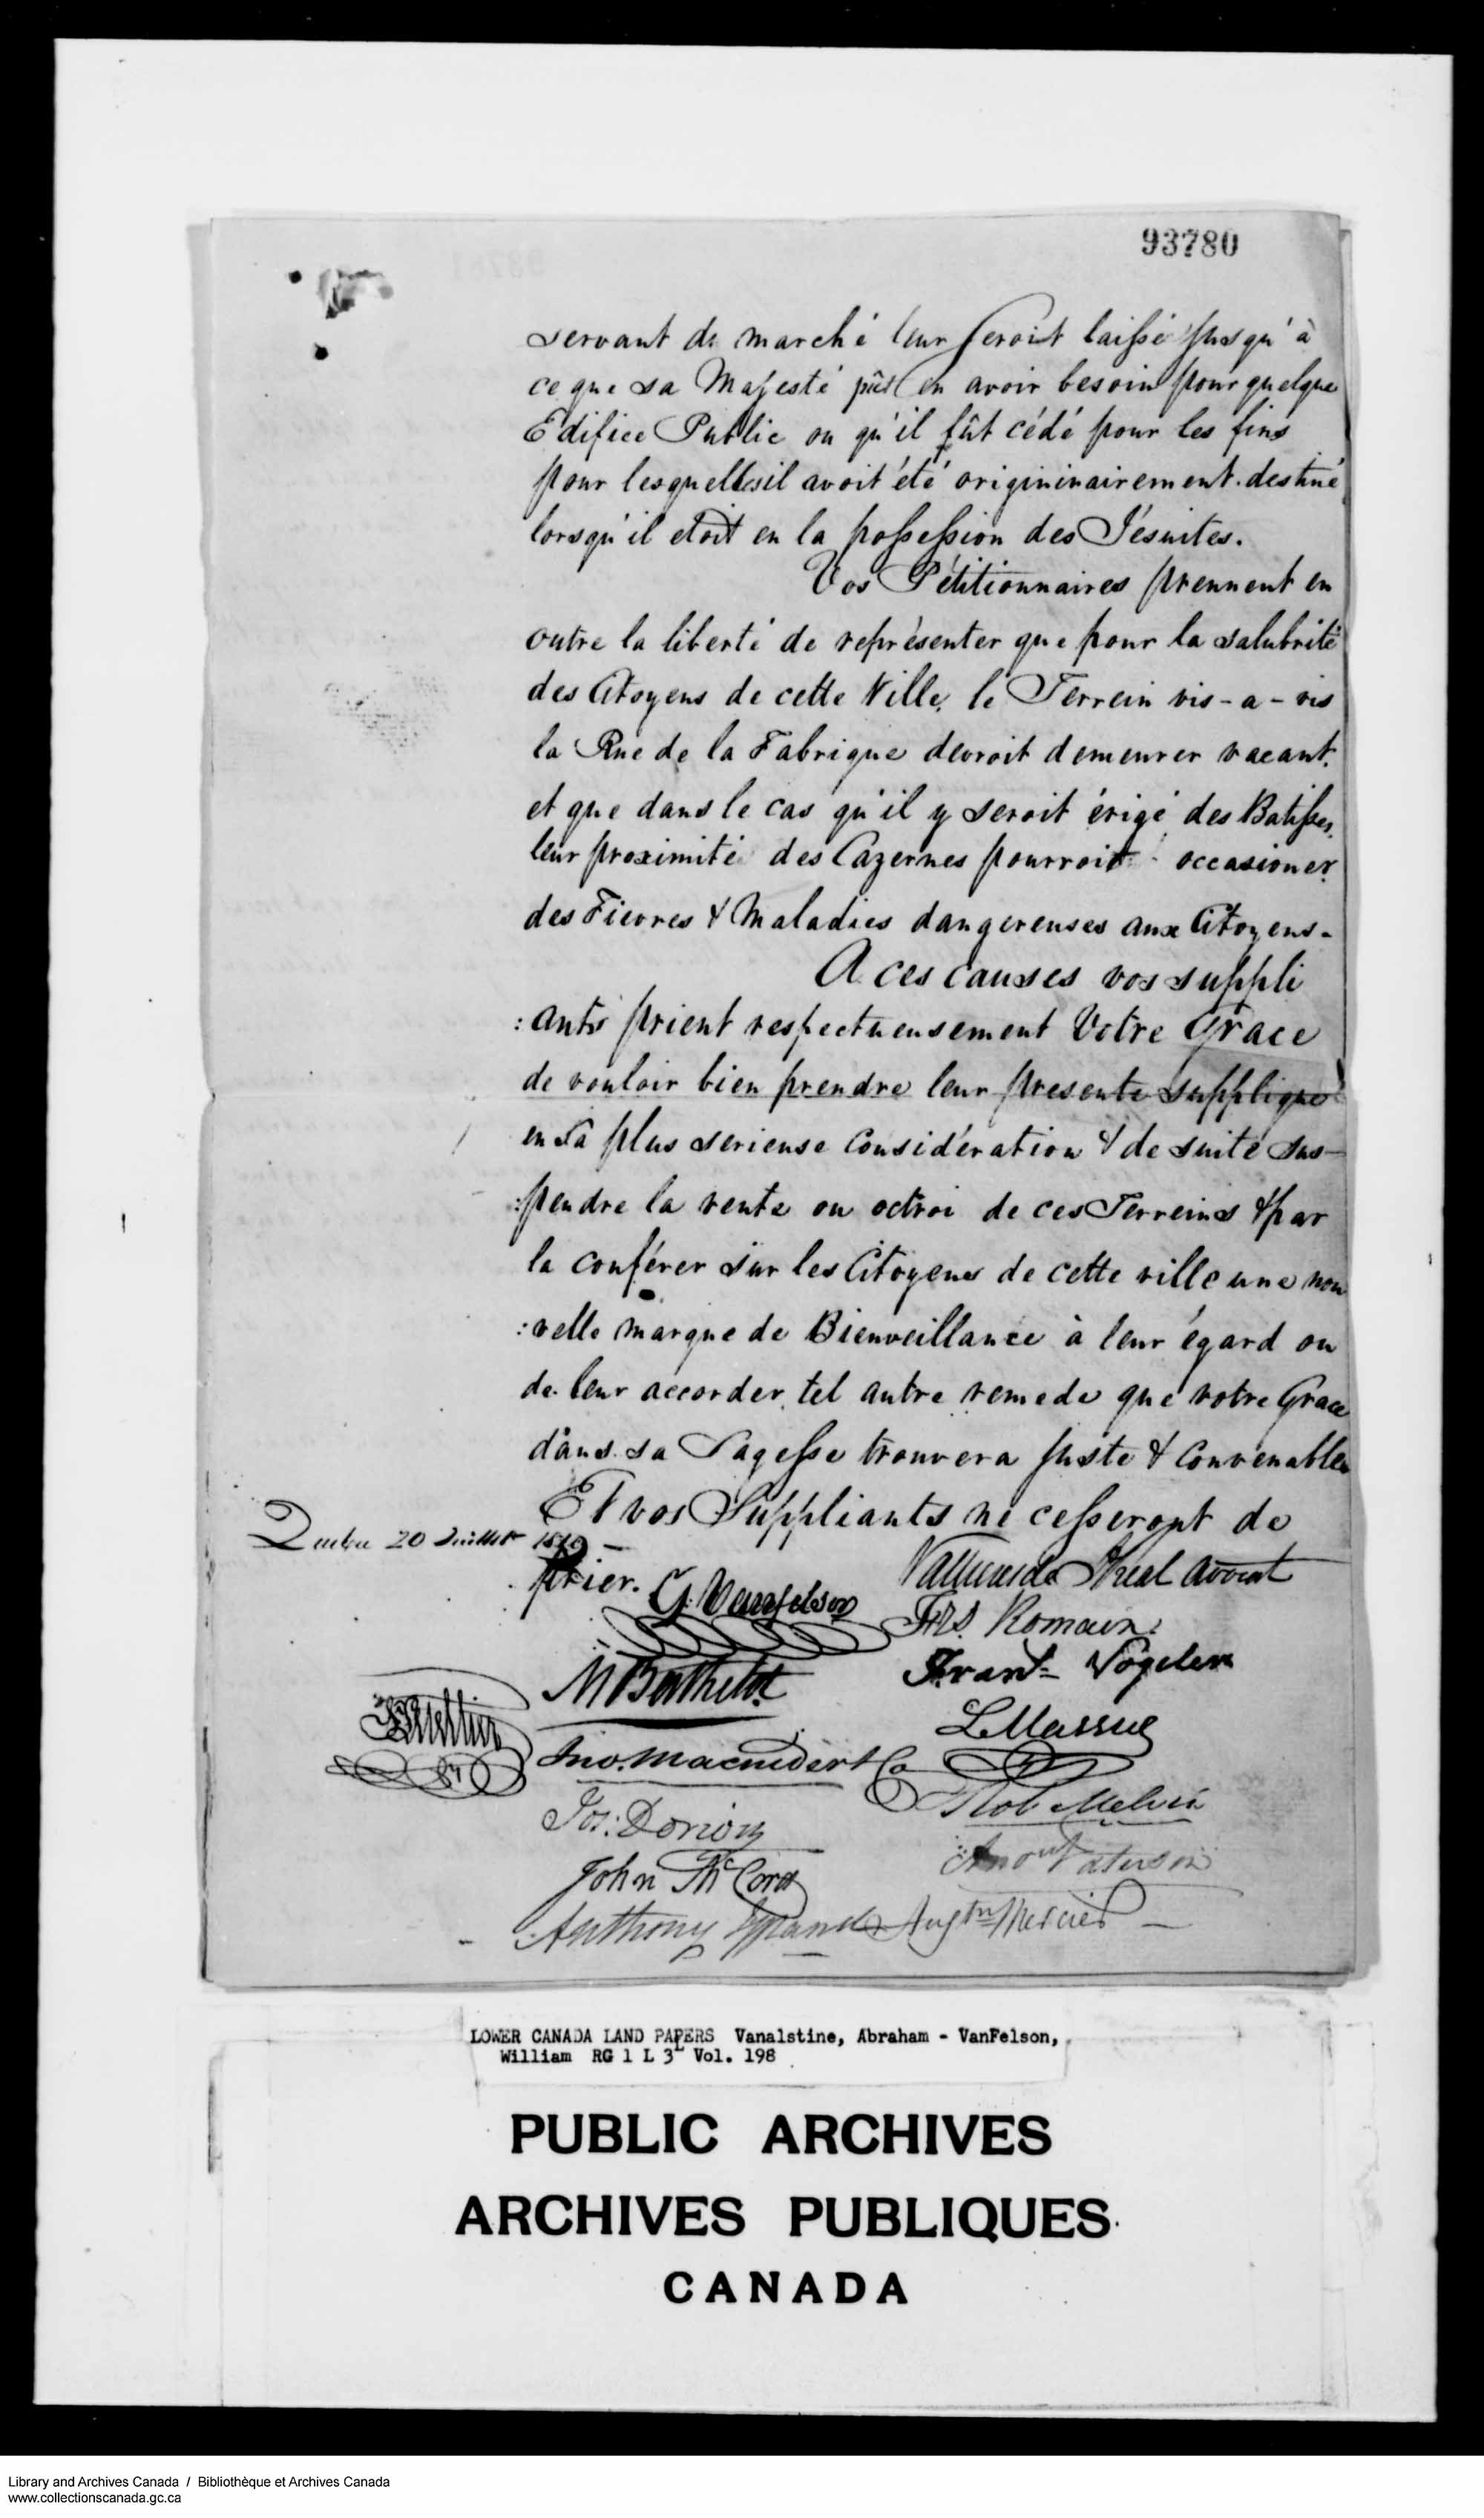 93780
servant de marché leur seroit laissé jusqu'à
ce que sa Majesté pût en avoir besoin pour quelque
Edifice Public ou qu'il fût cédé pour les fins
pour lesquelles il avoit été origininairement destiné
lorsqu'il etoit en la possession des Jésuites.
Vos Pétitionnaires prennent en
outre la liberté de représenter que pour la salubrité
des Citoyens de cette Ville, le Terrein vis-a-vis
la Rue de la Fabrique devroit demeurer vacant,
et que dans le cas qu'il y seroit érigé des Batisses,
leur proximité des Cazernes pourroit occasioner
des Fievres & Maladies dangereuses aux Citoyens-
A ces causes vos suppli
:ants prient respectueusement Votre Grace
de vouloir bien prendre leur presente supplique
en sa plus serieuse Considération & de suite sus-
:pendre la vente ou octroi de ces Terreins & par
la conférer sur les Citoyens de cette ville une nou
:velle marque de Bienveillance à leur égard ou
de leur accorder tel autre remede que votre Grace
dans sa Sagesse trouvera juste & convenable
Et vos Suppliants ne cesseront de
Quebec 20 Juillet 1819 -
prier.
G. Vanfelson
Vallieres de St Real avocat
Frs. Romain
Frant= Vogeler
M Berthelot
L Massue
Jno. Macnider & Co
Rob Melvin
Jos: Dorion
Paterson
John McCord
Anthony
Augtn Mercier
LOWER CANADA LAND PAPERS Vanalstine, Abraham - VanFelson,
William RG 1 L 3L Vol. 198
PUBLIC ARCHIVES
ARCHIVES PUBLIQUES
CANADA
Library and Archives Canada / Bibliothèque et Archives Canada
www.collectionscanada.gc.ca